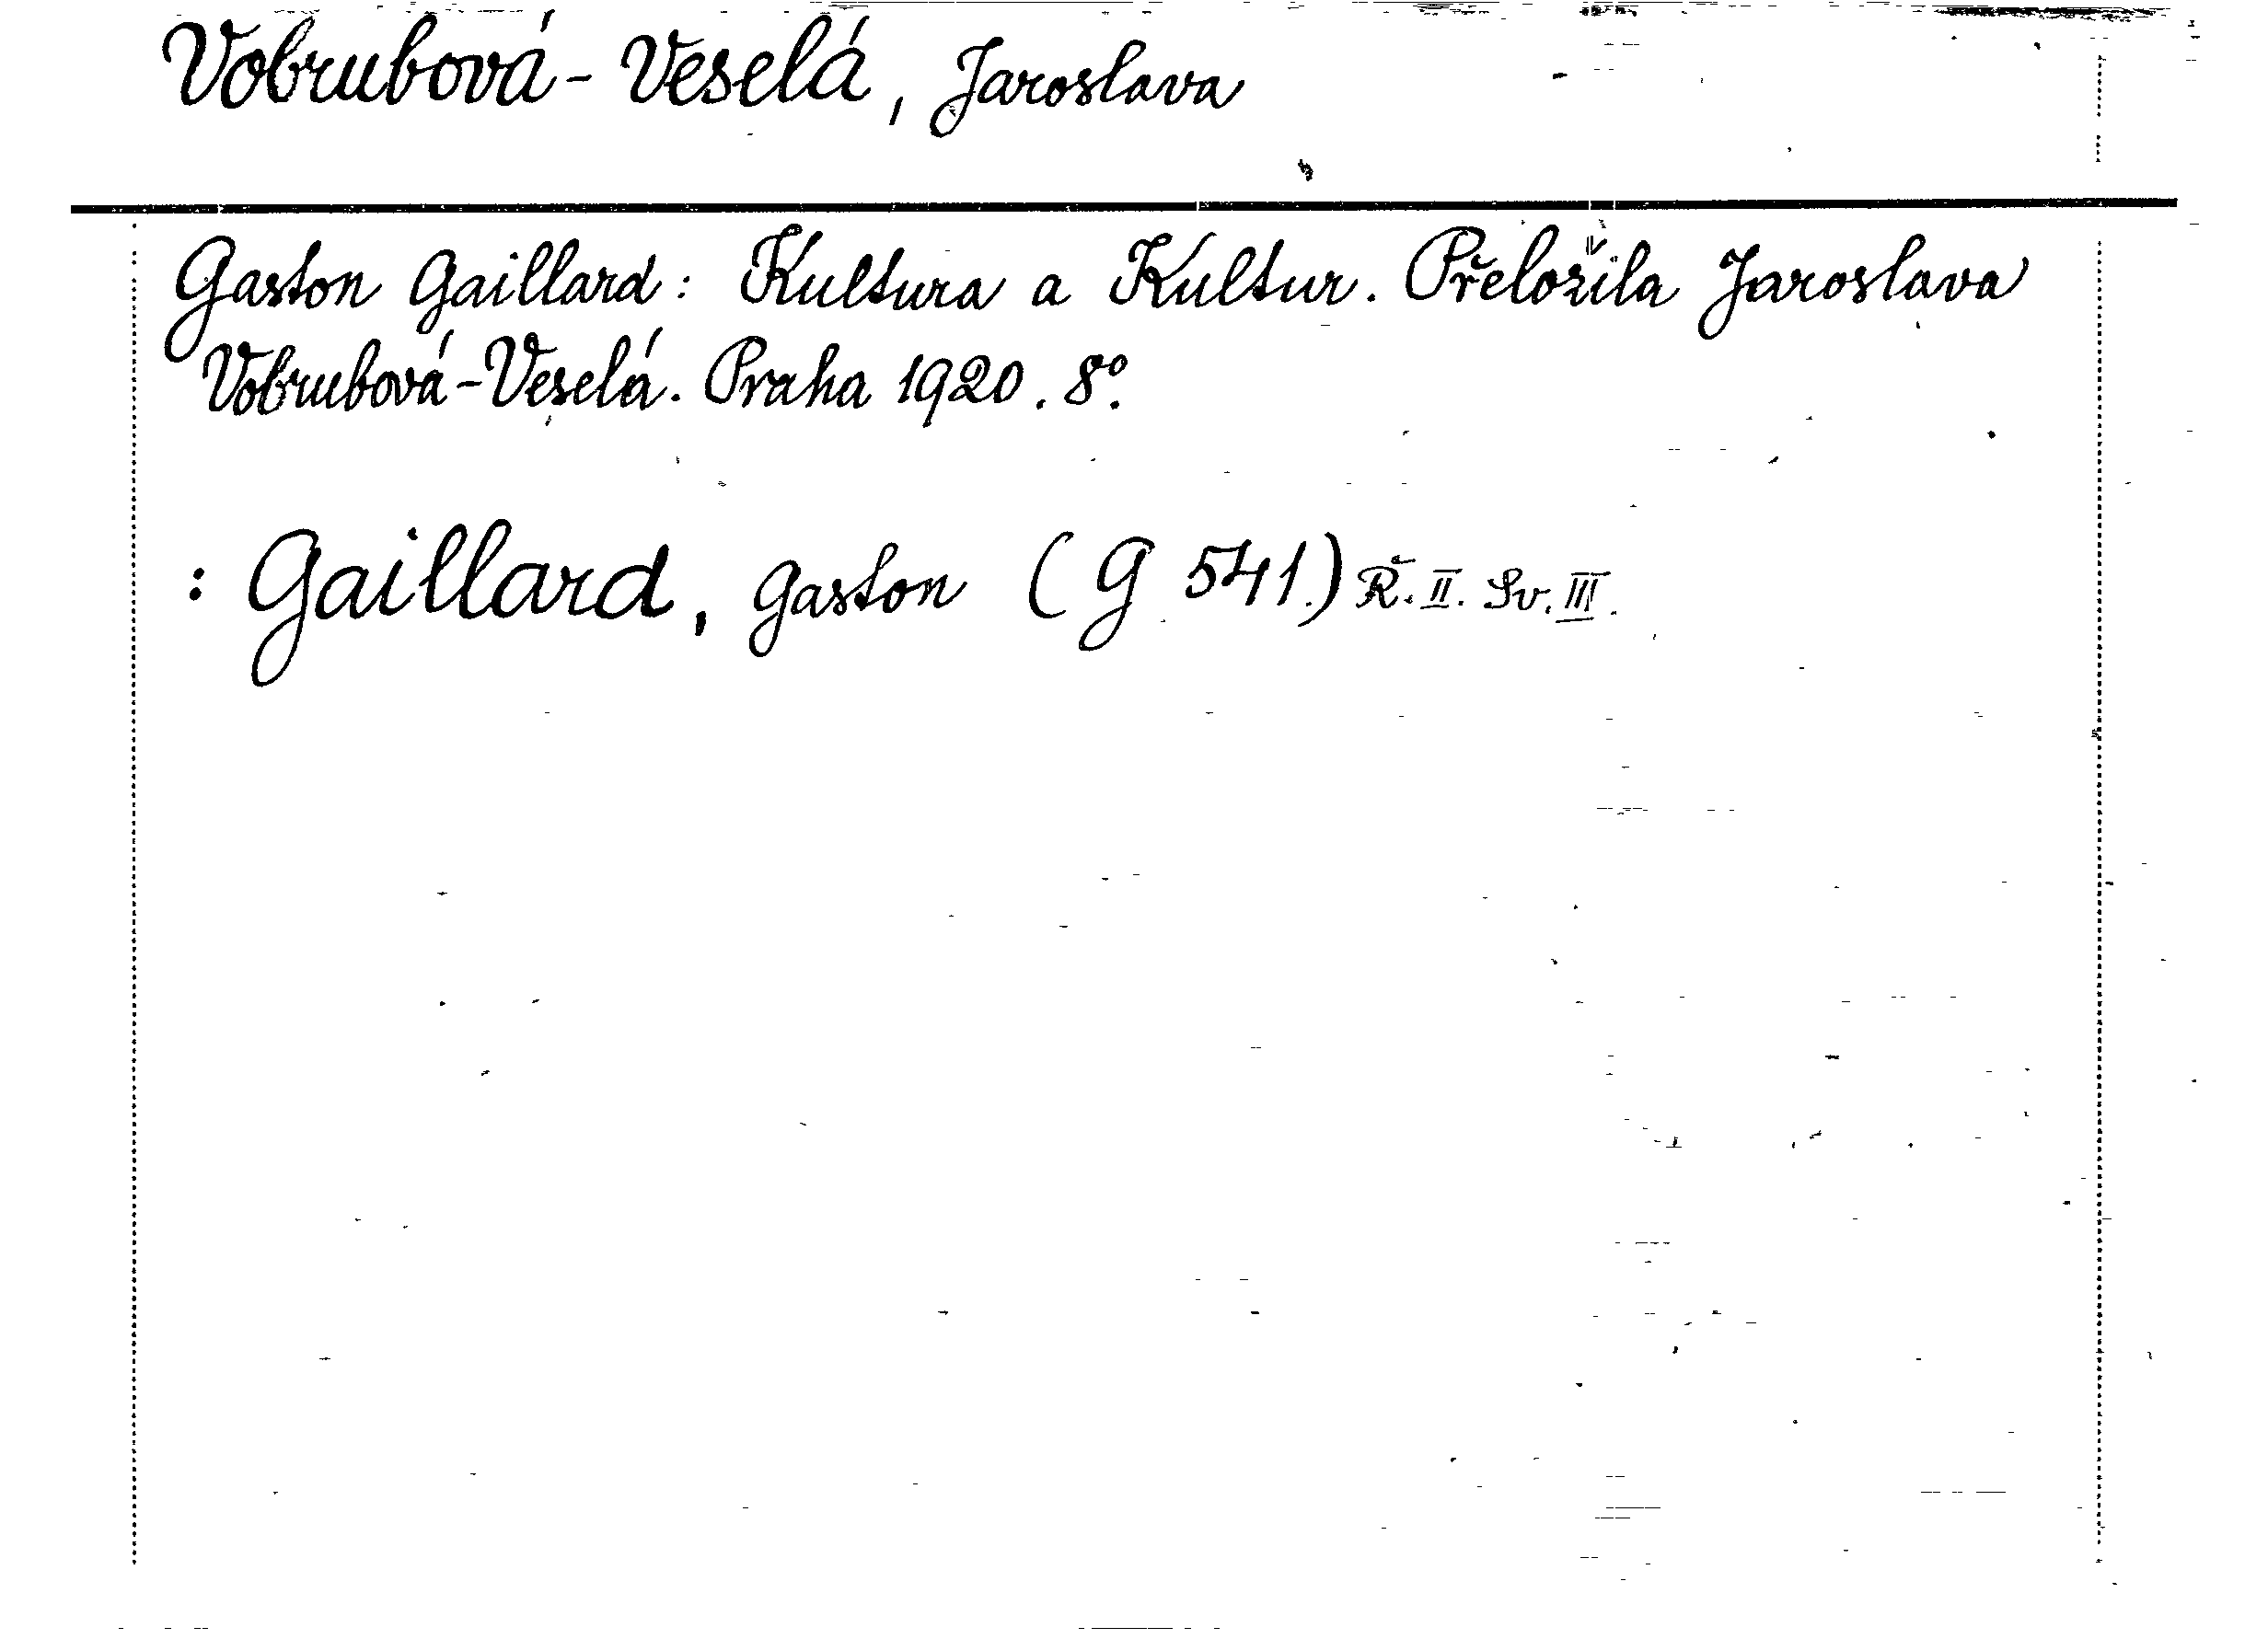 Vobrubová-Veselá, Jaroslava
Gaston Gaillard: Kultura a Kultur. Přeložila Jaroslava
Vobrubová-Veselá. Praha 1920. 8°.
: Gaillard, Gaston (G 541.) Ř. II. Sv. III.